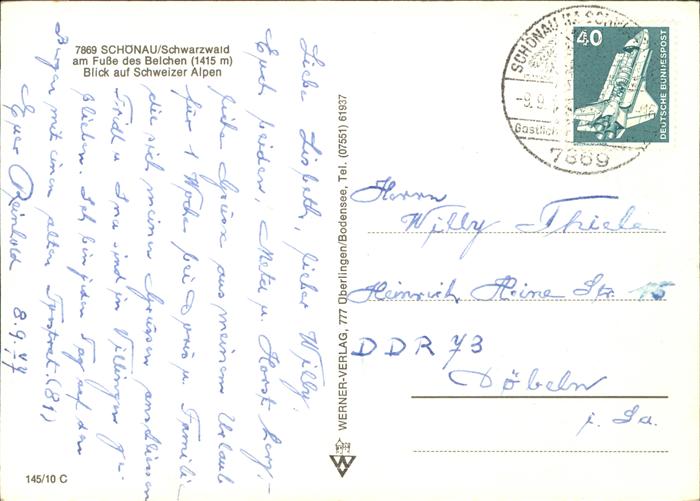 7869 SCHÖNAU/Schwarzwald
am Fuße des Belchen (1415 m)
Blick auf Schweizer Alpen
Liebe Lisbeth, lieber Willy.
Euch beiden, Meta u. Horst herz-
liche Grüsse aus meinem Urlaub
für 1 Woche bei Doris u. Familie
die sich meinen Grüssen anschliessen
Fridl u. Ina sind in Villingen ge-
blieben. Ich bin jeden Tag auf den
Bergen mit einem alten (81)
Euer Reinhold 8.9.77
WERNER-VERLAG, 777 Überlingen/Bodensee, Tel. (07551) 61937
W
145/10 C
SCHÖNAU IM SCH
-9.9.
-16
Gastlich
7869
40
DEUTSCHE BUNDESPOST
Herrn
Willy Thiele
Heinrich Heine Str. 15
DDR 73
Döbeln
i. Sa.